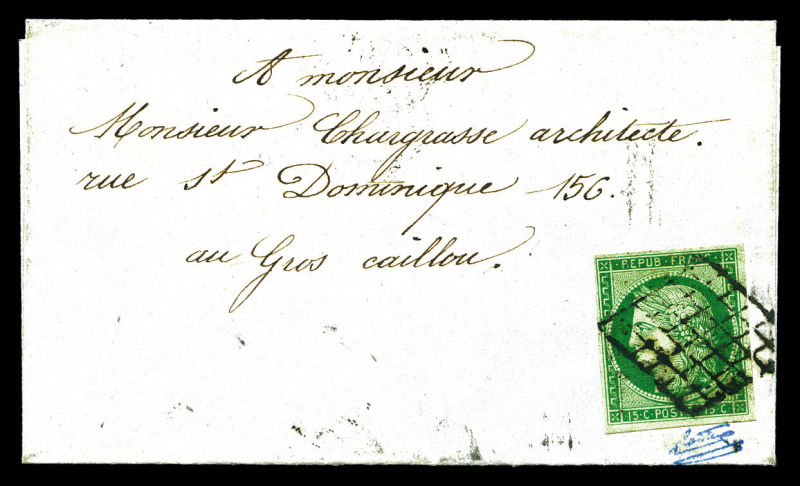 A monsieur
Monsieur Chargrasse architecte.
rue St Dominique 156.
au Gros caillou.
REPUB FRA
15·C·POSTE 15·C·